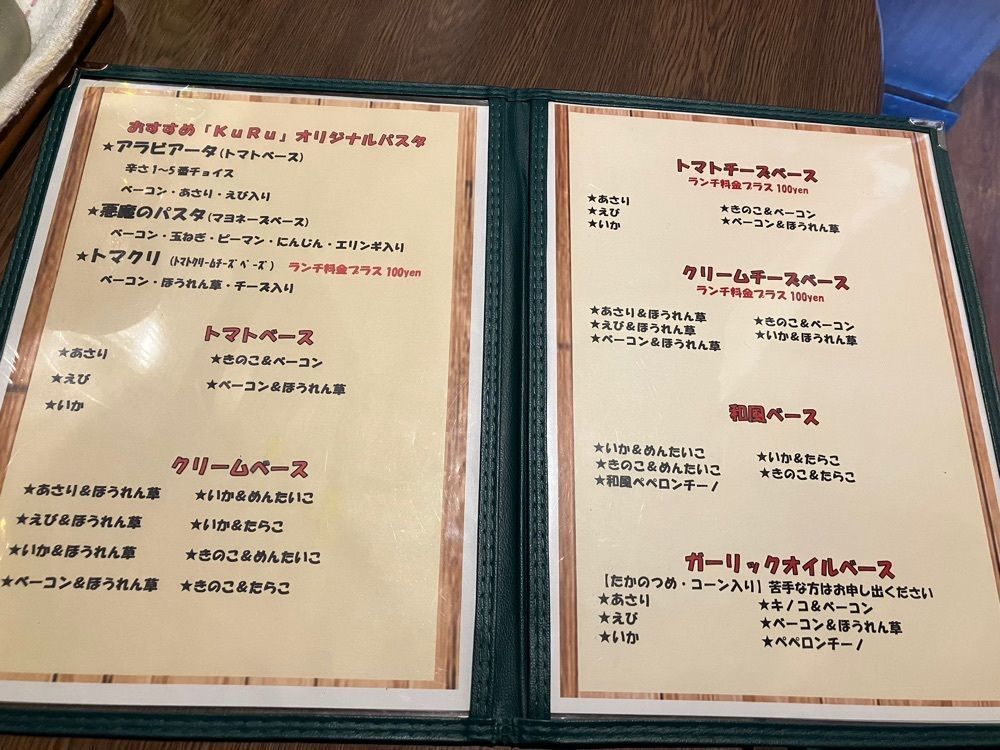 おすすめ「KuRu」オリジナルパスタ
★アラビアータ(トマトベース)
辛さ1~5番チョイス
ベーコン・あさり・えび入り
★悪魔のパスタ(マヨネーズベース)
ベーコン・玉ねぎ・ピーマン・にんじん・エリンギ入り
★トマクリ(ﾄﾏﾄｸﾘｰﾑﾁｰｽﾞﾍﾞｰｽﾞ) ランチ料金プラス100yen
ベーコン・ほうれん草・チーズ入り
トマトベース
★あさり ★きのこ&ベーコン
★えび ★ベーコン&ほうれん草
★いか
クリームベース
★あさり&ほうれん草 ★いか&めんたいこ
★えび&ほうれん草 ★いか&たらこ
★いか&ほうれん草 ★きのこ&めんたいこ
★ベーコン&ほうれん草 ★きのこ&たらこ
トマトチーズベース
ランチ料金プラス100yen
★あさり ★きのこ&ベーコン
★えび ★ベーコン&ほうれん草
★いか
クリームチーズベース
ランチ料金プラス100yen
★あさり&ほうれん草 ★きのこ&ベーコン
★えび&ほうれん草 ★いか&ほうれん草
★ベーコン&ほうれん草
和風ベース
★いか&めんたいこ ★いか&たらこ
★きのこ&めんたいこ ★きのこ&たらこ
★和風ペペロンチーノ
ガーリックオイルベース
【たかのつめ・コーン入り】苦手な方はお申し出ください
★あさり ★キノコ&ベーコン
★えび ★ベーコン&ほうれん草
★いか ★ペペロンチーノ